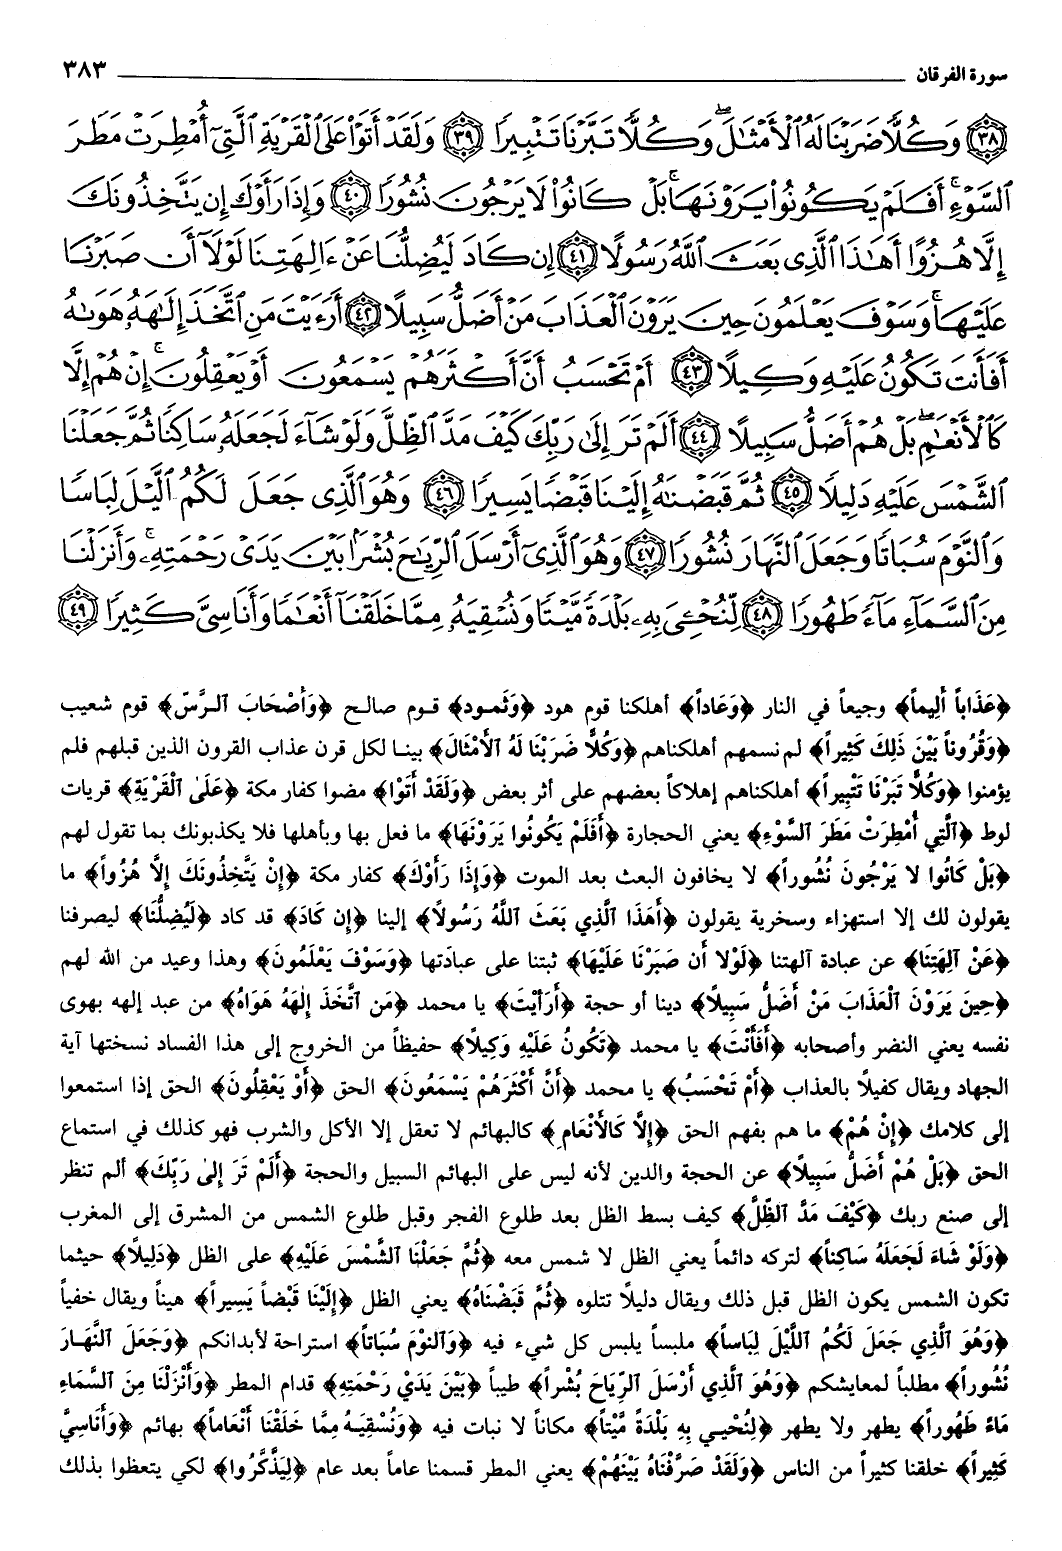 سورة الفرقان ٣٨٣
﴿٣٨﴾ وَكُلًّا ضَرَبْنَا لَهُ ٱلْأَمْثَـٰلَ ۖ وَكُلًّا تَبَّرْنَا تَتْبِيرًا ﴿٣٩﴾ وَلَقَدْ أَتَوْا۟ عَلَى ٱلْقَرْيَةِ ٱلَّتِىٓ أُمْطِرَتْ مَطَرَ
ٱلسَّوْءِ ۚ أَفَلَمْ يَكُونُوا۟ يَرَوْنَهَا ۚ بَلْ كَانُوا۟ لَا يَرْجُونَ نُشُورًا ﴿٤٠﴾ وَإِذَا رَأَوْكَ إِن يَتَّخِذُونَكَ
إِلَّا هُزُوًا أَهَـٰذَا ٱلَّذِى بَعَثَ ٱللَّهُ رَسُولًا ﴿٤١﴾ إِن كَادَ لَيُضِلُّنَا عَنْ ءَالِهَتِنَا لَوْلَآ أَن صَبَرْنَا
عَلَيْهَا ۚ وَسَوْفَ يَعْلَمُونَ حِينَ يَرَوْنَ ٱلْعَذَابَ مَنْ أَضَلُّ سَبِيلًا ﴿٤٢﴾ أَرَءَيْتَ مَنِ ٱتَّخَذَ إِلَـٰهَهُۥ هَوَىٰهُ
أَفَأَنتَ تَكُونُ عَلَيْهِ وَكِيلًا ﴿٤٣﴾ أَمْ تَحْسَبُ أَنَّ أَكْثَرَهُمْ يَسْمَعُونَ أَوْ يَعْقِلُونَ ۚ إِنْ هُمْ إِلَّا
كَٱلْأَنْعَـٰمِ ۖ بَلْ هُمْ أَضَلُّ سَبِيلًا ﴿٤٤﴾ أَلَمْ تَرَ إِلَىٰ رَبِّكَ كَيْفَ مَدَّ ٱلظِّلَّ وَلَوْ شَآءَ لَجَعَلَهُۥ سَاكِنًا ثُمَّ جَعَلْنَا
ٱلشَّمْسَ عَلَيْهِ دَلِيلًا ﴿٤٥﴾ ثُمَّ قَبَضْنَـٰهُ إِلَيْنَا قَبْضًا يَسِيرًا ﴿٤٦﴾ وَهُوَ ٱلَّذِى جَعَلَ لَكُمُ ٱلَّيْلَ لِبَاسًا
وَٱلنَّوْمَ سُبَاتًا وَجَعَلَ ٱلنَّهَارَ نُشُورًا ﴿٤٧﴾ وَهُوَ ٱلَّذِىٓ أَرْسَلَ ٱلرِّيَـٰحَ بُشْرًۢا بَيْنَ يَدَىْ رَحْمَتِهِۦ ۚ وَأَنزَلْنَا
مِنَ ٱلسَّمَآءِ مَآءً طَهُورًا ﴿٤٨﴾ لِّنُحْـِۧىَ بِهِۦ بَلْدَةً مَّيْتًا وَنُسْقِيَهُۥ مِمَّا خَلَقْنَآ أَنْعَـٰمًا وَأَنَاسِىَّ كَثِيرًا ﴿٤٩﴾
﴿عَذَاباً أَلِيماً﴾ وجيعاً في النار ﴿وَعَاداً﴾ أهلكنا قوم هود ﴿وَثَمود﴾ قوم صالح ﴿وَأَصْحَابَ ٱلرَّسّ﴾ قوم شعيب
﴿وَقُرُوناً بَيْنَ ذَلِكَ كَثِيراً﴾ لم نسمهم أهلكناهم ﴿وَكُلًّا ضَرَبْنَا لَهُ ٱلأَمْثَالَ﴾ بينا لكل قرن عذاب القرون الذين قبلهم فلم
يؤمنوا ﴿وَكُلًّا تَبَّرْنَا تَتْبِيراً﴾ أهلكناهم إهلاكاً بعضهم على أثر بعض ﴿وَلَقَدْ أَتَوْا﴾ مضوا كفار مكة ﴿عَلَىٰ ٱلْقَرْيَةِ﴾ قريات
لوط ﴿ٱلَّتِي أُمْطِرَتْ مَطَرَ ٱلسَّوْءِ﴾ يعني الحجارة ﴿أَفَلَمْ يَكُونُوا يَرَوْنَهَا﴾ ما فعل بها وبأهلها فلا يكذبونك بما تقول لهم
﴿بَلْ كَانُوا لا يَرْجُونَ نُشُوراً﴾ لا يخافون البعث بعد الموت ﴿وَإِذَا رَأَوْكَ﴾ كفار مكة ﴿إِنْ يَتَّخِذُونَكَ إِلَّا هُزُواً﴾ ما
يقولون لك إلا استهزاء وسخرية يقولون ﴿أَهَذَا ٱلَّذِي بَعَثَ ٱللَّهُ رَسُولاً﴾ إلينا ﴿إِن كَادَ﴾ قد كاد ﴿لَيُضِلُّنَا﴾ ليصرفنا
﴿عَنْ آلِهَتِنَا﴾ عن عبادة آلهتنا ﴿لَوْلا أَن صَبَرْنَا عَلَيْهَا﴾ ثبتنا على عبادَتها ﴿وَسَوْفَ يَعْلَمُونَ﴾ وهذا وعيد من الله لهم
﴿حِينَ يَرَوْنَ ٱلْعَذَابَ مَنْ أَضَلُّ سَبِيلاً﴾ دينا أو حجة ﴿أَرَأَيْتَ﴾ يا محمد ﴿مَن ٱتَّخَذَ إِلٰهَهُ هَوَاهُ﴾ من عبد إلهه بهوى
نفسه يعني النضر وأصحابه ﴿أَفَأَنْتَ﴾ يا محمد ﴿تَكُونُ عَلَيْهِ وَكِيلاً﴾ حفيظاً من الخروج إلى هذا الفساد نسختها آية
الجهاد ويقال كفيلاً بالعذاب ﴿أَمْ تَحْسَبُ﴾ يا محمد ﴿أَنَّ أَكْثَرَهُمْ يَسْمَعُونَ﴾ الحق ﴿أَوْ يَعْقِلُونَ﴾ الحق إذا استمعوا
إلى كلامك ﴿إِنْ هُمْ﴾ ما هم بفهم الحق ﴿إِلَّا كَالأَنْعَامِ﴾ كالبهائم لا تعقل إلا الأكل والشرب فهو كذلك في استماع
الحق ﴿بَلْ هُمْ أَضَلُّ سَبِيلاً﴾ عن الحجة والدين لأنه ليس على البهائم السبيل والحجة ﴿أَلَمْ تَرَ إِلىٰ رَبِّكَ﴾ ألم تنظر
إلى صنع ربك ﴿كَيْفَ مَدَّ ٱلظِّلَّ﴾ كيف بسط الظل بعد طلوع الفجر وقبل طلوع الشمس من المشرق إلى المغرب
﴿وَلَوْ شَاءَ لَجَعَلَهُ سَاكِناً﴾ لتركه دائماً يعني الظل لا شمس معه ﴿ثُمَّ جَعَلْنَا ٱلشَّمْسَ عَلَيْهِ﴾ على الظل ﴿دَلِيلاً﴾ حيثما
تكون الشمس يكون الظل قبل ذلك ويقال دليلاً تتلوه ﴿ثُمَّ قَبَضْنَاهُ﴾ يعني الظل ﴿إِلَيْنَا قَبْضاً يَسِيراً﴾ هيناً ويقال خفياً
﴿وَهُوَ ٱلَّذِي جَعَلَ لَكُمُ ٱللَّيْلَ لِبَاساً﴾ ملبساً يلبس كل شيء فيه ﴿وَٱلنوْمَ سُبَاتاً﴾ استراحة لأبدانكم ﴿وَجَعَلَ ٱلنَّهَارَ
نُشُوراً﴾ مطلباً لمعايشكم ﴿وَهُوَ ٱلَّذِي أَرْسَلَ ٱلرِّيَاحَ بُشْراً﴾ طيباً ﴿بَيْنَ يَدَيْ رَحْمَتِهِ﴾ قدام المطر ﴿وَأَنْزَلْنَا مِنَ ٱلسَّمَاءِ
مَاءً طَهُوراً﴾ يطهر ولا يطهر ﴿لِنُحْيِـيَ بِهِ بَلْدَةً مَّيْتاً﴾ مكاناً لا نبات فيه ﴿وَنُسْقِيَـهُ مِمَّا خَلَقْنَا أَنْعَاماً﴾ بهائم ﴿وَأَنَاسِيَّ
كَثِيراً﴾ خلقنا كثيراً من الناس ﴿وَلَقَدْ صَرَّفْنَاهُ بَيْنَهُمْ﴾ يعني المطر قسمنا عاماً بعد عام ﴿لِيَذَّكَّرُوا﴾ لكي يتعظوا بذلك